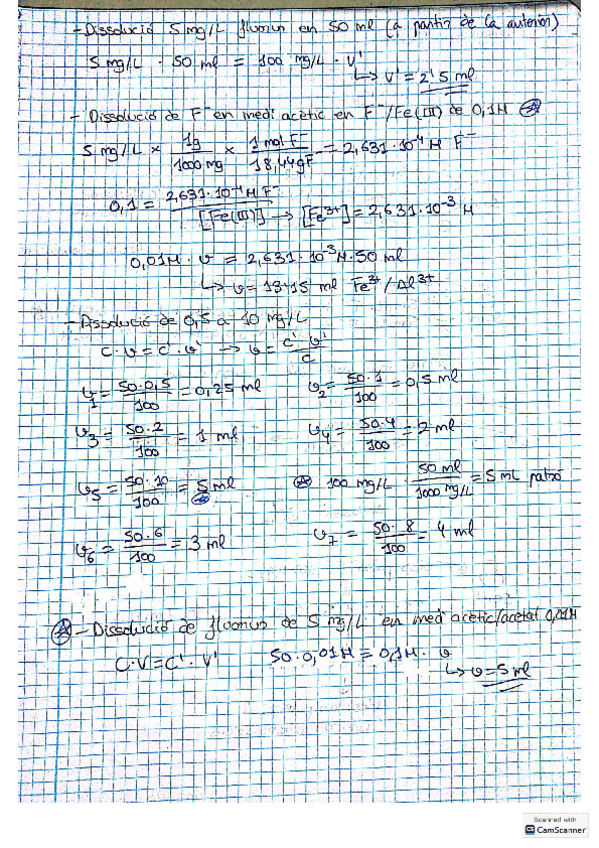 - Dissolució 5 mg/L fluorur en 50 ml (a partir de la anterior)
5 mg/L · 50 ml = 100 mg/L · V'
↳ V' = 2'5 ml
- Dissolució de F⁻ en medi acètic en F⁻/Fe(III) de 0,1M
5 mg/L × 1g/1000 mg × 1 mol F⁻/18,44g F = 2,631·10⁻⁴ M F⁻
0,1 = 2,631·10⁻⁴ M F⁻/[Fe(III)] → [Fe³⁺] = 2,631·10⁻³ M
0,01M · v = 2,631·10⁻³ M · 50 ml
↳ v = 13'15 ml Fe³⁺/Al³⁺
- Dissolució de 0,5 a 10 mg/L
C·v = C'·v' → v = C'·v'/C
v₁ = 50·0,5/100 = 0,25 ml v₂ = 50·1/100 = 0,5 ml
v₃ = 50·2/100 = 1 ml v₄ = 50·4/100 = 2 ml
v₅ = 50·10/100 = 5 ml 100 mg/L · 50 ml/1000 mg/L = 5 mL patró
v₆ = 50·6/100 = 3 ml v₇ = 50·8/100 = 4 ml
- Dissolució de fluorur de 5 mg/L en medi acètic/acetat 0,01M
C·V = C'·V' 50·0,01M = 0,1M · v
↳ v = 5 ml
Scanned with
CamScanner